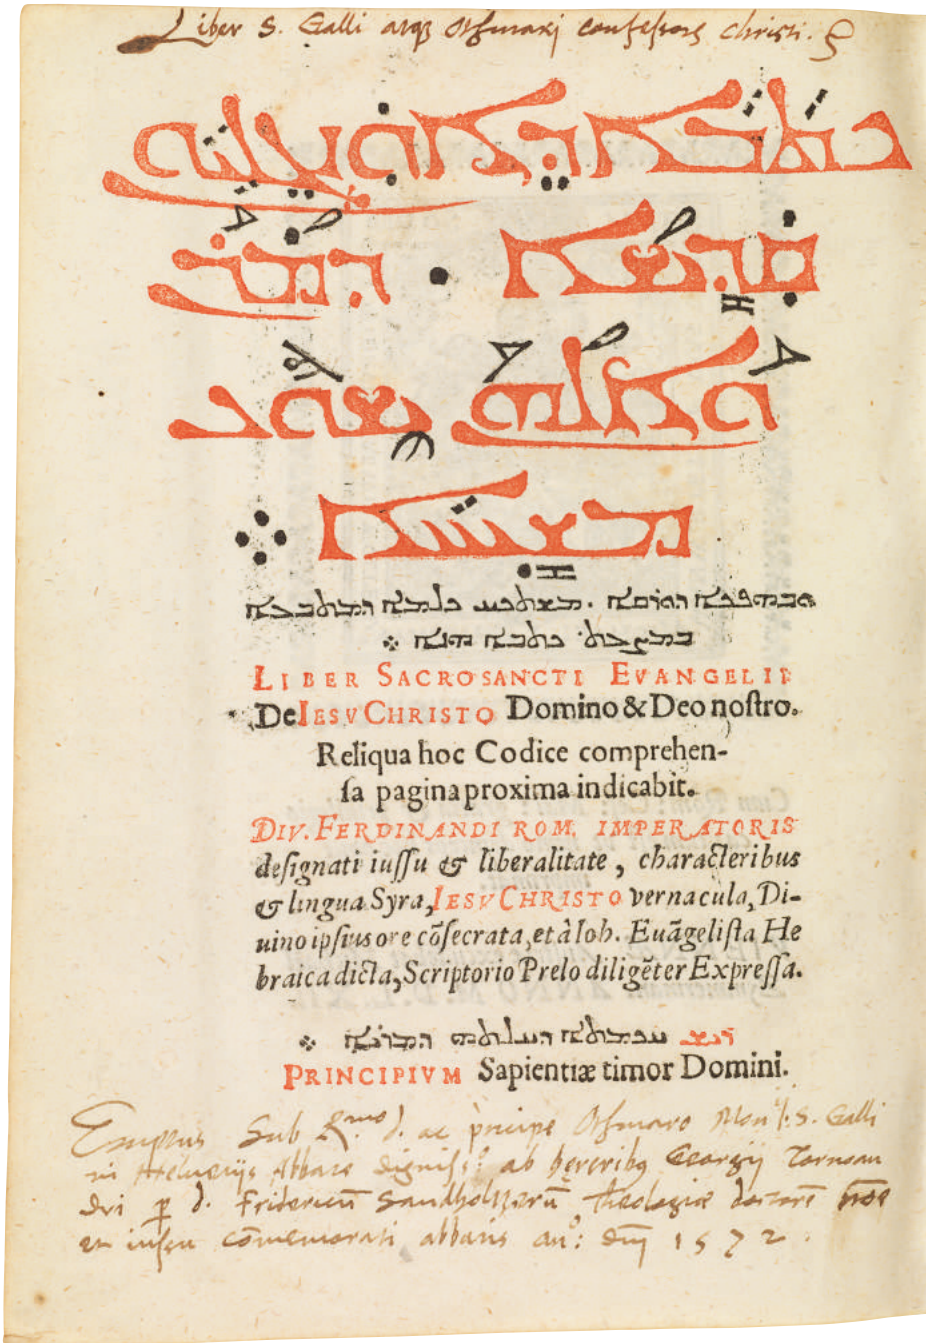 Liber S. Galli atqꝫ Othmarj confessoris christi.
ܟܬܒܐ ܕܐܘܢܓܠܝܘܢ
ܩܕܝܫܐ . ܕܡܪܢ
ܘܐܠܗܢ ܝܫܘܥ
ܡܫܝܚܐ
ܟܬܒܐ ܗܢܐ
LIBER SACROSANCTI EVANGELII
De IESV CHRISTO Domino & Deo noſtro.
Reliqua hoc Codice comprehen-
ſa pagina proxima indicabit.
DIV. FERDINANDI ROM. IMPERATORIS
deſignati iuſſu & liberalitate, characteribus
& lingua Syra, IESV CHRISTO vernacula, Di-
uino ipſius ore cõſecrata, et à Ioh. Euãgeliſta He
braica dicta, Scriptorio Prelo diligẽter Expreſſa.
ܪܝܫ ܚܟܡܬܐ ܕܚܠܬܗ ܕܡܪܝܐ
PRINCIPIVM Sapientiæ timor Domini.
Emptus Sub R.mo d. ac principe Othmaro S. Galli
in Helvetijs Abbate ab heredibꝫ Georgij
dri d. Fridericũ Sandholtzerũ theologiæ doctorẽ nõe
et iussu cõmemorati abbatis anº: dñj 1572.